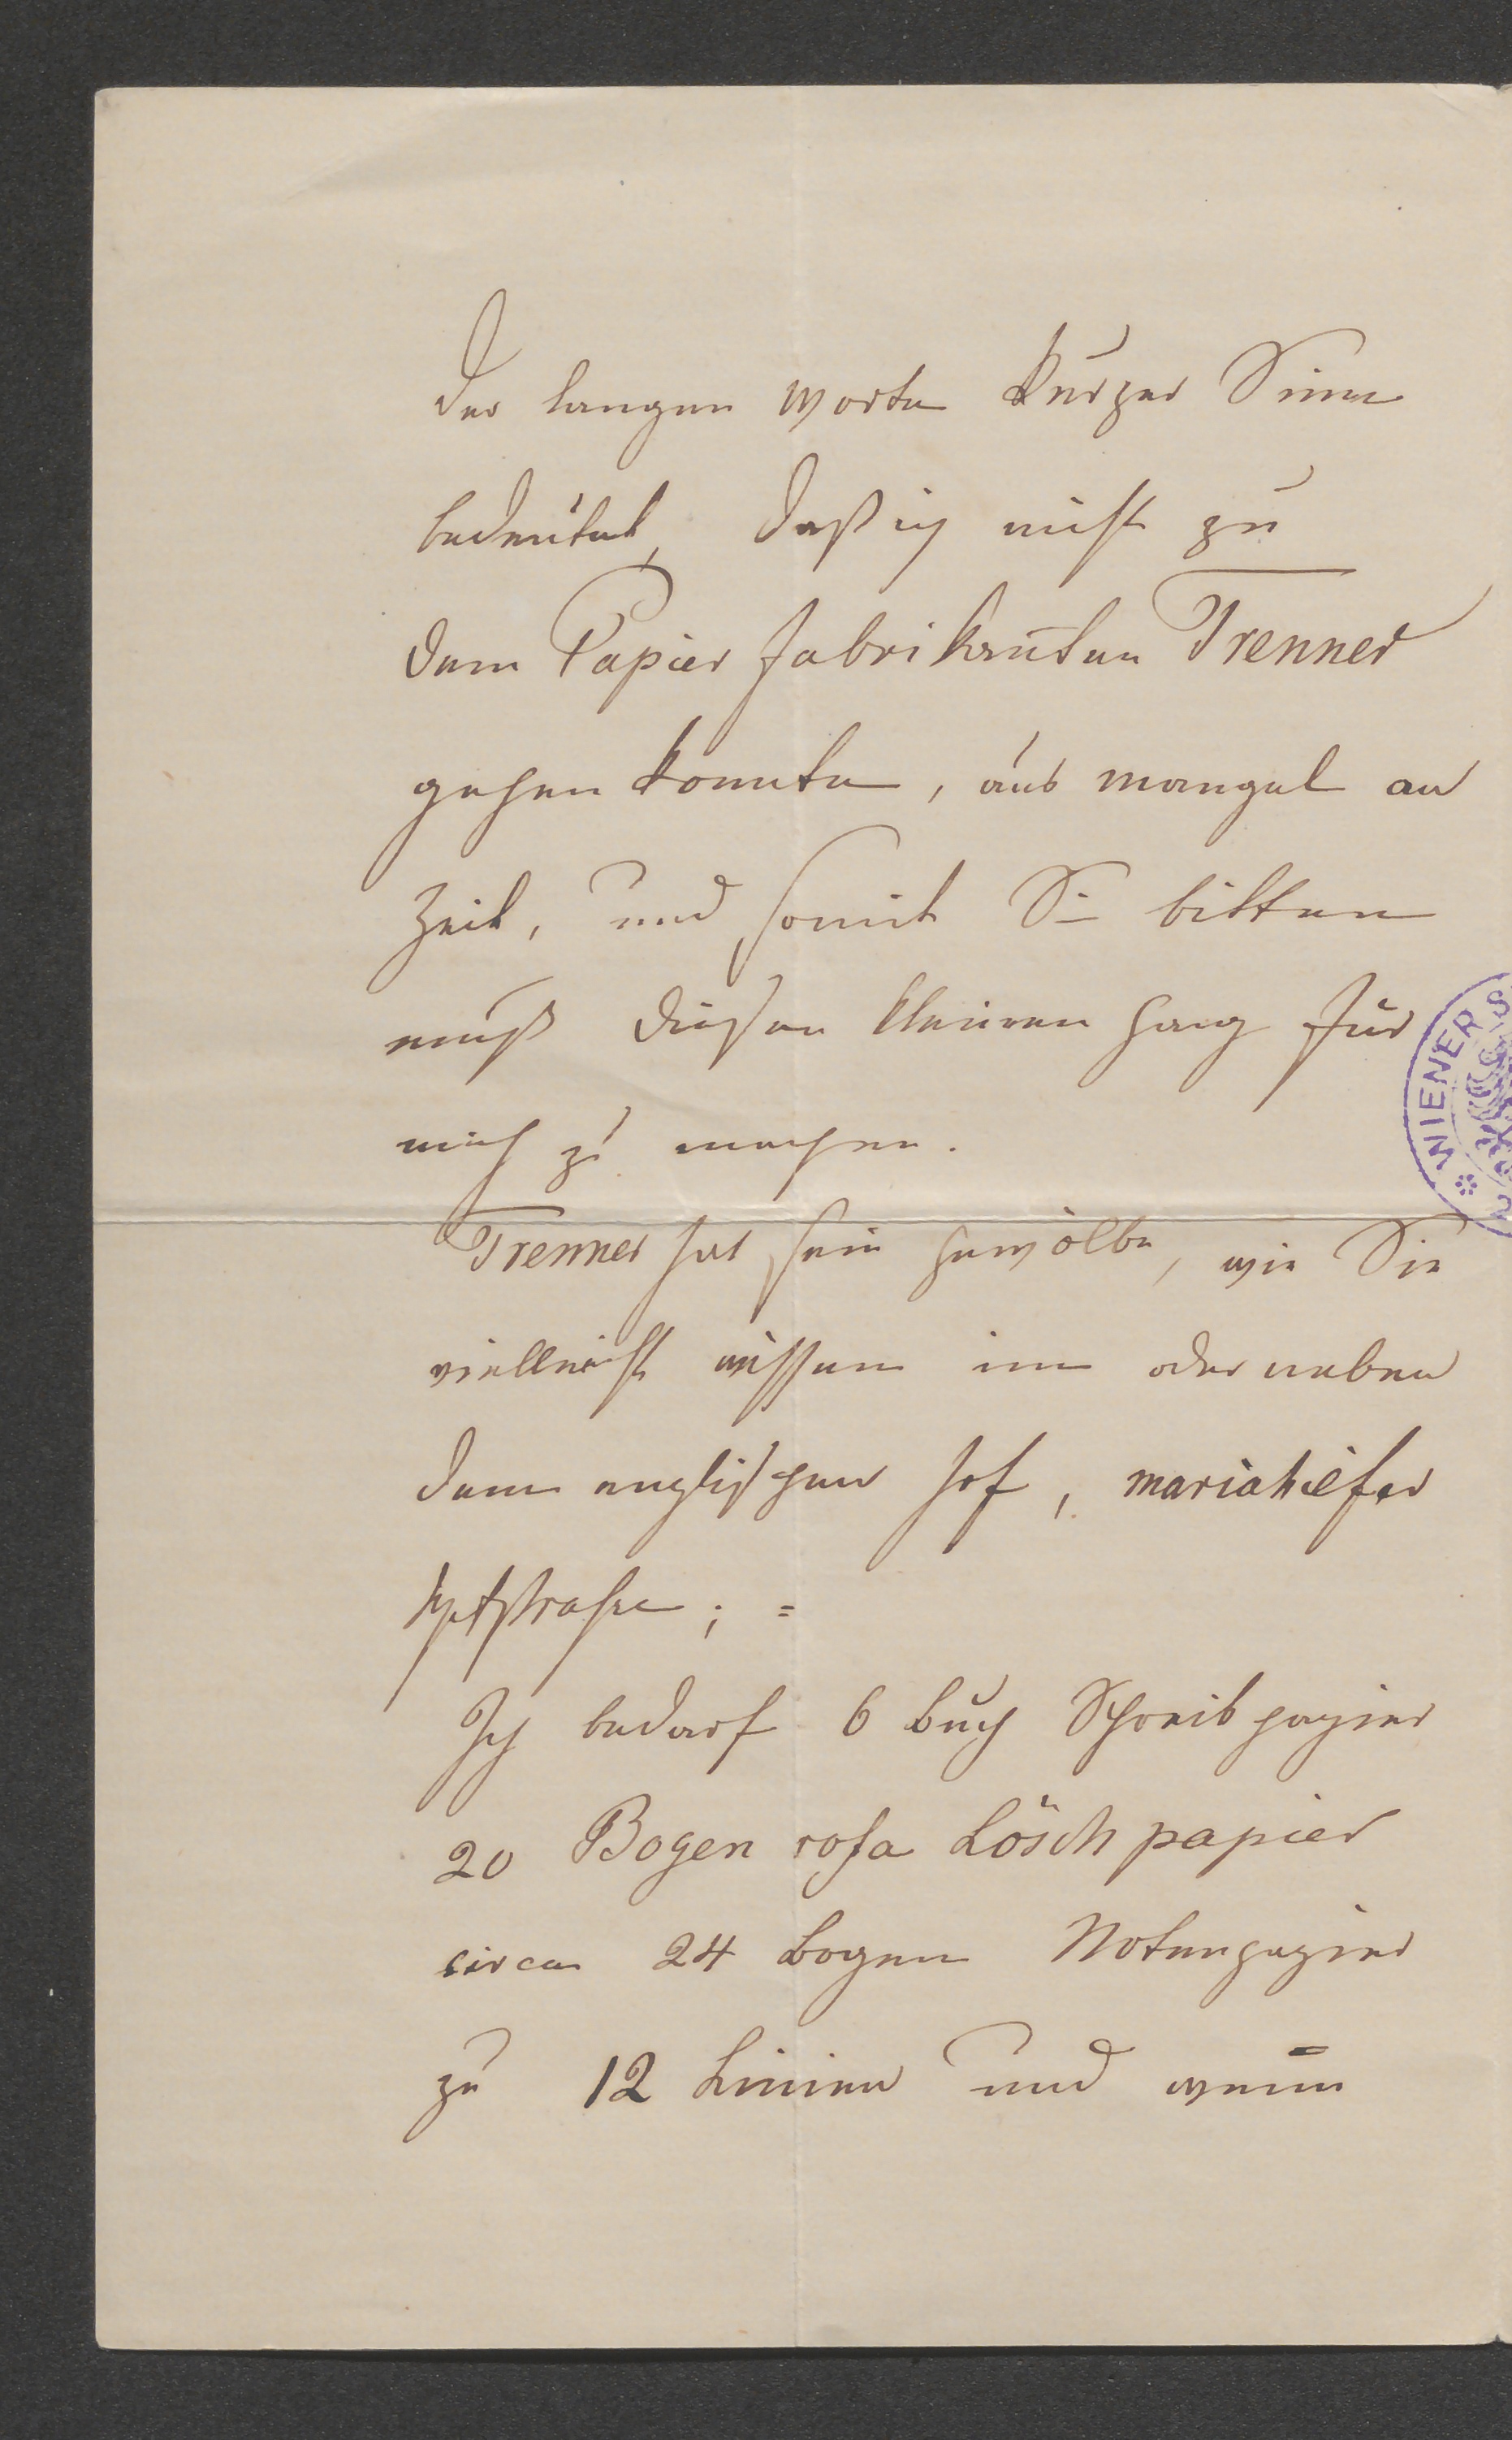 Der langen worte kurzer Sinn
bedeutet, daß ich nicht zu
dem Papier fabrikanten Trenner
gehen konnte, aus mangel an
Zeit, und somit Sie bitten
muß diesen kleinen Gang für
mich zu machen.
Trenner hat sein Gewölbe, wie Sie
vielleicht wissen im oder neben
dem englischen Hof, mariahilfer
hptstrasse; =
Ich bedarf 6 buch Schreibpapier
20 Bogen rosa Löschpapier
circa 24 bogen Notenpapier
zu 12 Linien und wenn
WIENER S